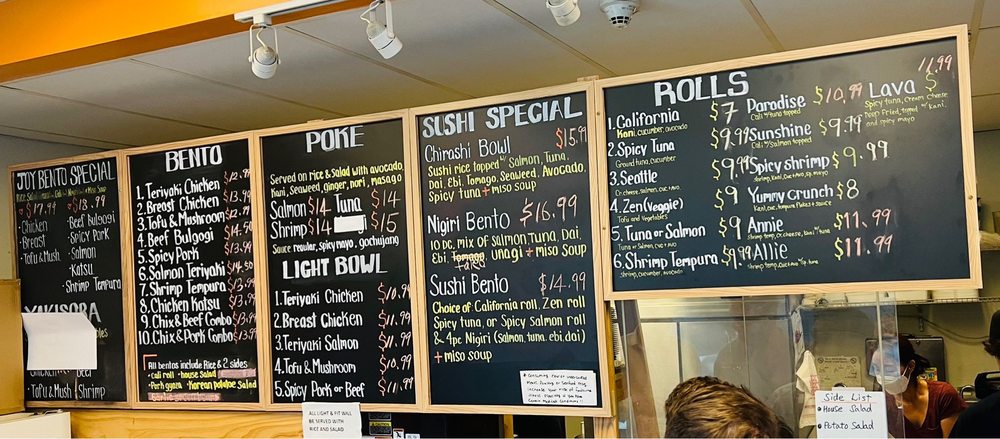 JOY BENTO SPECIAL
$17.99 $18.99
• Chicken
• Breast
• Tofu & Mush.
• Beef Bulgogi
• Spicy Pork
• Salmon
• Katsu
• Shrimp Tempura
YAKISOBA
• Tofu & Mush
• Shrimp
BENTO
1. Teriyaki Chicken
2. Breast Chicken
3. Tofu & Mushroom
4. Beef Bulgogi
5. Spicy Pork
6. Salmon Teriyaki
7. Shrimp Tempura
8. Chicken Katsu
9. Chix & Beef Combo
10. Chix & Pork Combo
All bentos include Rice & 2 sides
• cali roll • house Salad
• Pork gyoza • Korean potatoe Salad
POKE
Served on rice & Salad with avocado,
Kani, Seaweed, ginger, nori, masago
Salmon $14 Tuna $14
Shrimp $14 $15
Sauce regular, spicy mayo, gochujang
LIGHT BOWL
1. Teriyaki Chicken $10.99
2. Breast Chicken $11.99
3. Teriyaki Salmon $11.99
4. Tofu & Mushroom $10.99
5. Spicy Pork or Beef $11.99
ALL LIGHT & FIT WILL
BE SERVED WITH
RICE AND SALAD
SUSHI SPECIAL
Chirashi Bowl $15.99
Sushi rice topped w/ Salmon, Tuna,
Dai, Ebi, Tomago, Seaweed, Avocado,
Spicy tuna + miso soup
Nigiri Bento $16.99
10 pc, mix of Salmon, Tuna, Dai,
Ebi, Tomago, unagi + miso Soup
Sushi Bento $14.99
Choice of California roll, Zen roll
Spicy tuna, or Spicy Salmon roll
& 4pc Nigiri (Salmon, tuna, ebi, dai)
+ miso soup
ROLLS
1. California $7
Kani, cucumber, avocado
2. Spicy Tuna $9.99
Ground tuna, cucumber
3. Seattle $9.99
Cr. cheese, salmon, cue + avo
4. Zen (Veggie) $9
Tofu and Vegetables
5. Tuna or Salmon $9
Tuna or Salmon, cue + avo
6. Shrimp Tempura $9.99
shrimp, cucumber, avocado
Paradise $10.99
Cali w/ Tuna topped
Sunshine $9.99
Cali w/ Salmon topped
Spicy shrimp $9.99
shrimp, Kani, Cue + avo, sp. mayo
Yummy crunch $8
Kani, cue, tempura flakes + sauce
Annie $11.99
Allie $11.99
Lava $ 11.99
Spicy tuna, cream cheese,
Deep Fried, topped w/ Kani,
and spicy mayo
Side List
• House Salad
• Potato Salad